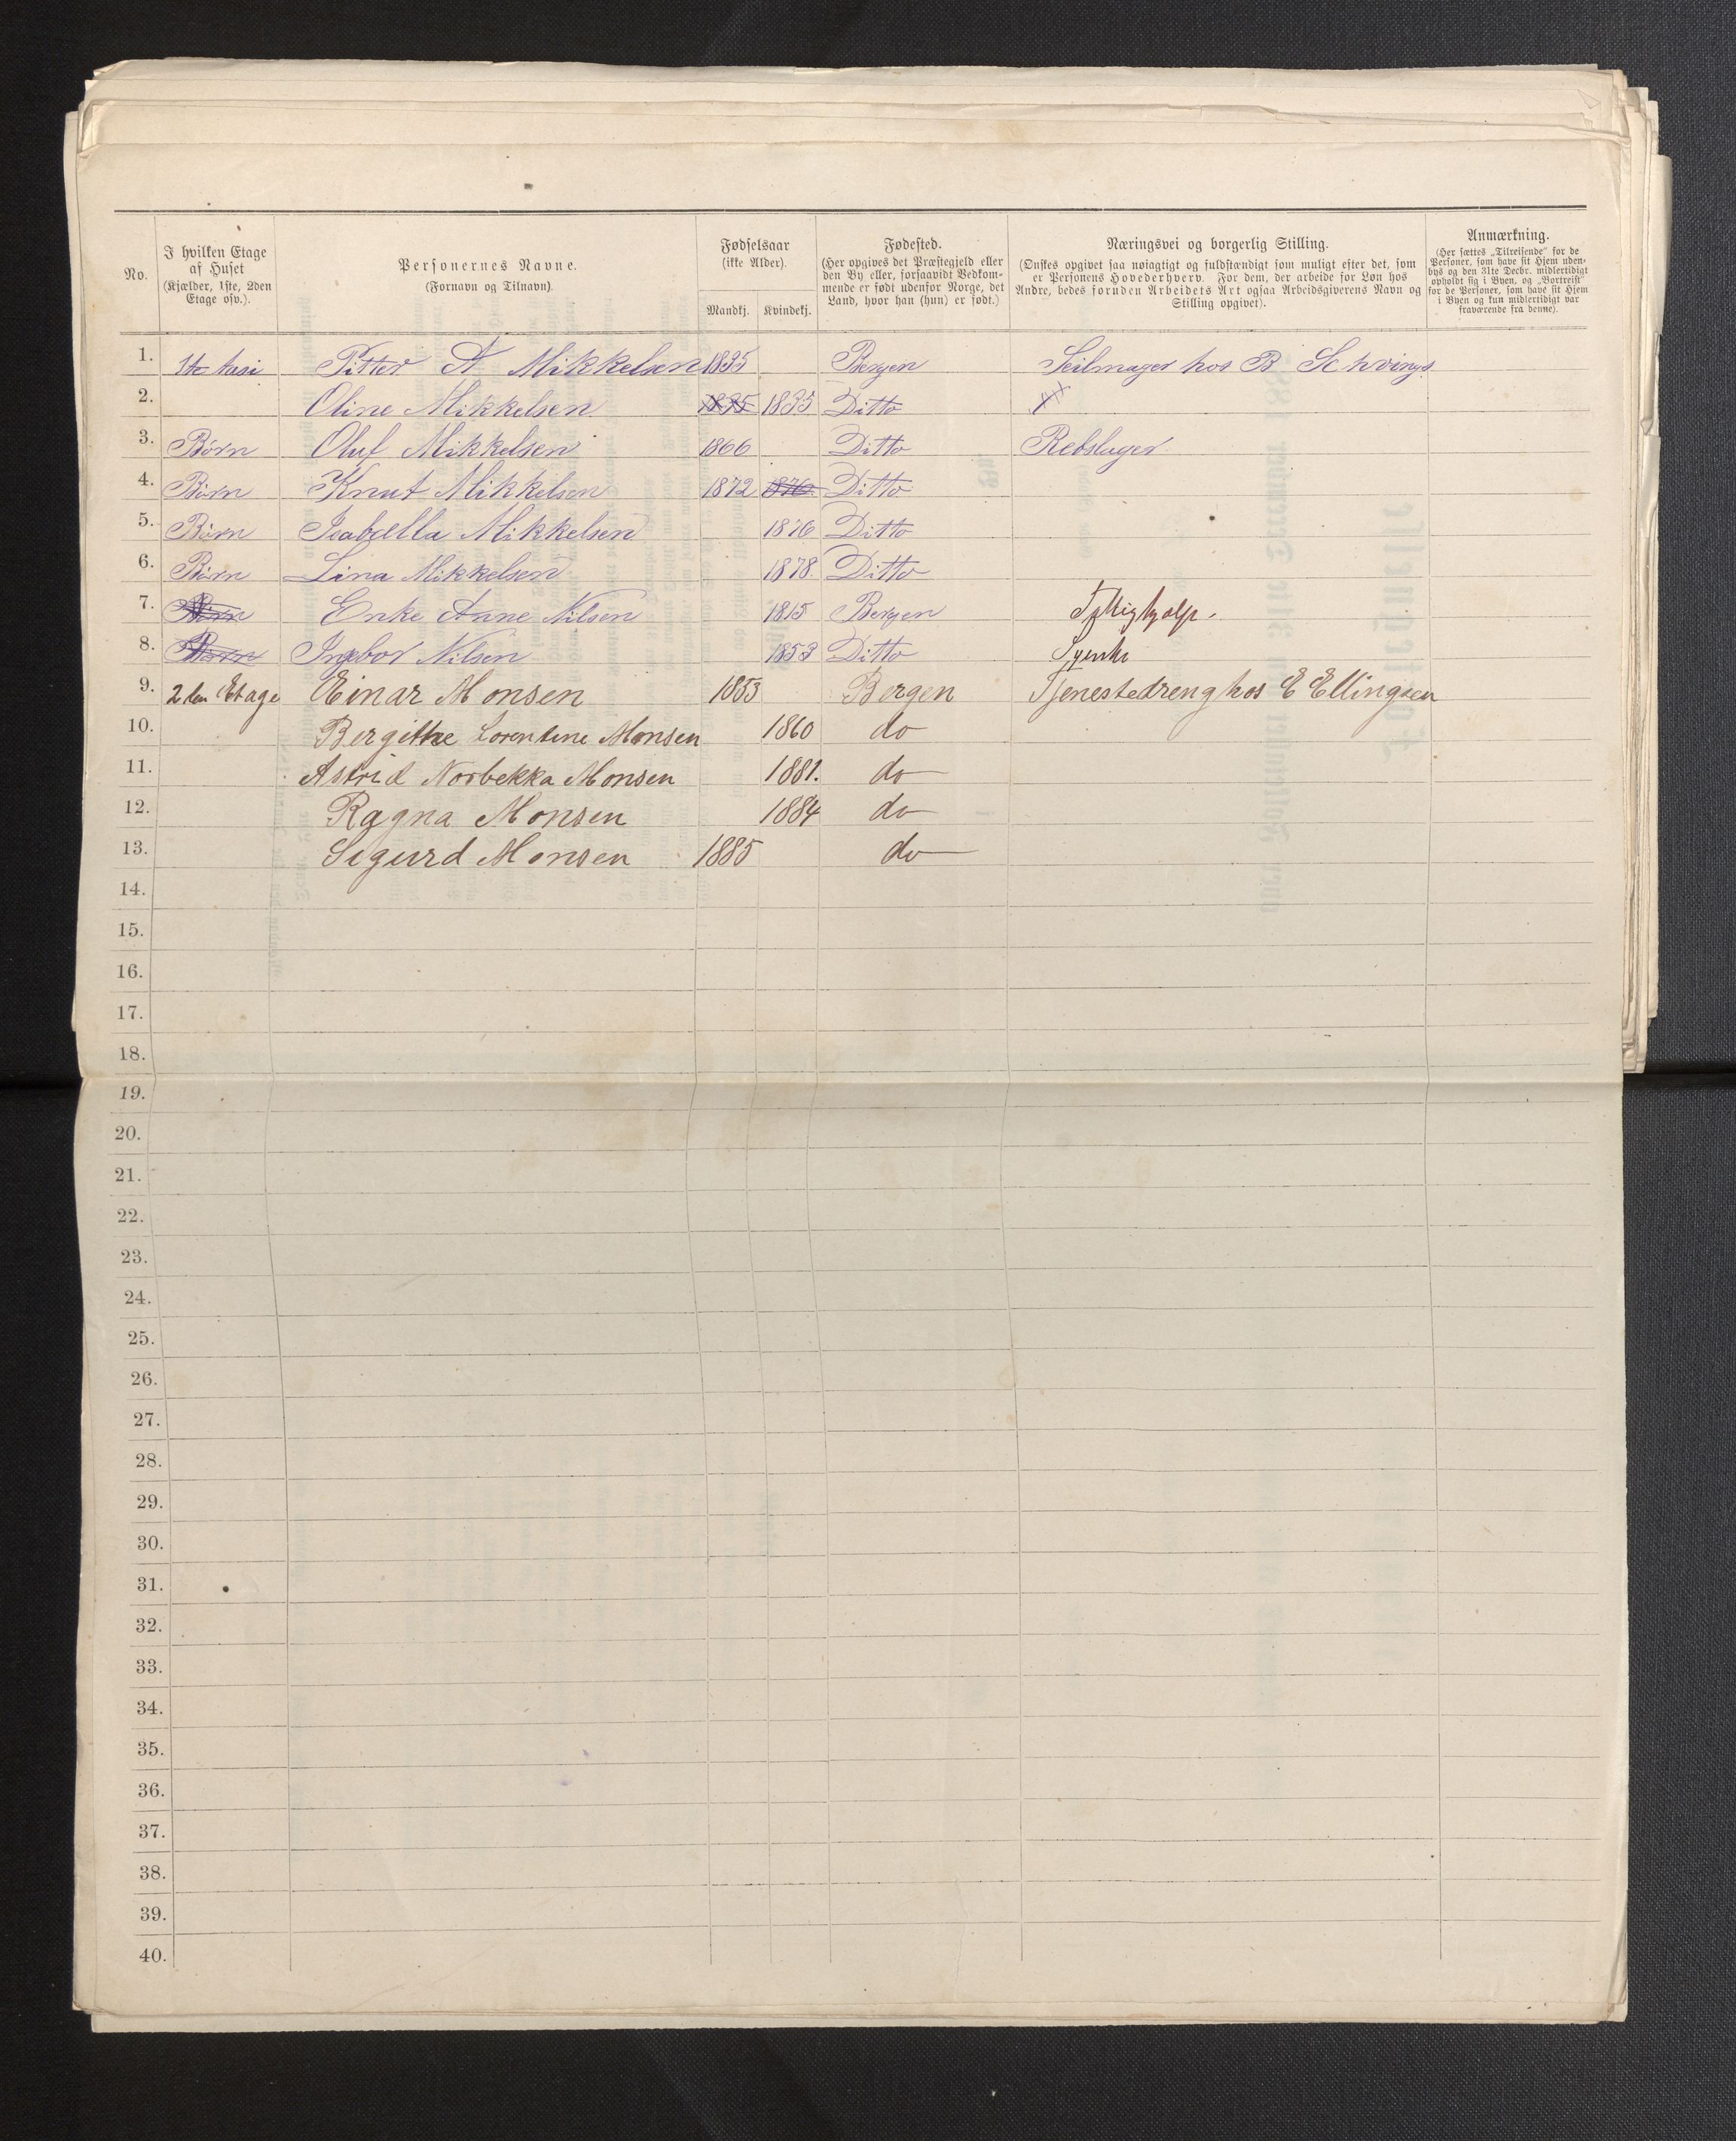 No.
I hvilken Etage af Huset (Kjælder, 1ste, 2den Etage osv.).
Personernes Navne. (Fornavn og Tilnavn).
Fødselsaar (ikke Alder).
Mandkj. Kvindekj.
Fødested. (Her opgives det Præstegjeld eller den By eller, forsaavidt Vedkommende er født udenfor Norge, det Land, hvor han (hun) er født.)
Næringsvei og borgerlig Stilling. (Ønskes opgivet saa nøiagtigt og fuldstændigt som muligt efter det, som er Personens Hovederhverv. For dem, der arbeide for Løn hos Andre, bedes foruden Arbeidets Art ogsaa Arbeidsgiverens Navn og Stilling opgivet).
Anmærkning. (Her sættes „Tilreisende" for de Personer, som have sit Hjem udenbys og den 31te Decbr. midlertidigt opholdt sig i Byen, og „Bortreist" for de Personer, som have sit Hjem i Byen og kun midlertidigt var fraværende fra denne).
1. 1te Pitter A Mikkelsen 1835 Bergen Seilmager hos B Schvings
2. Oline Mikkelsen 1835 1835 Ditto
3. Børn Oluf Mikkelsen 1866 Ditto Rebslager
4. Børn Knut Mikkelsen 1872 1876 Ditto
5. Børn Isabella Mikkelsen 1876 Ditto
6. Børn Lina Mikkelsen 1878 Ditto
7. Børn Enke Anne Nilsen 1815 Bergen
8. Børn Ingebor Nilsen 1853 Ditto
9. 2den Etage Einar Monsen 1853 Bergen Tjenestedreng hos E Ellingsen
10. Bergithe Lorentine Monsen 1860 do
11. Astrid Norbekka Monsen 1881. do
12. Ragna Monsen 1884 do
13. Sigurd Monsen 1885 do
14.
15.
16.
17.
18.
19.
20.
21.
22.
23.
24.
25.
26.
27.
28.
29.
30.
31.
32.
33.
34.
35.
36.
37.
38.
39.
40.